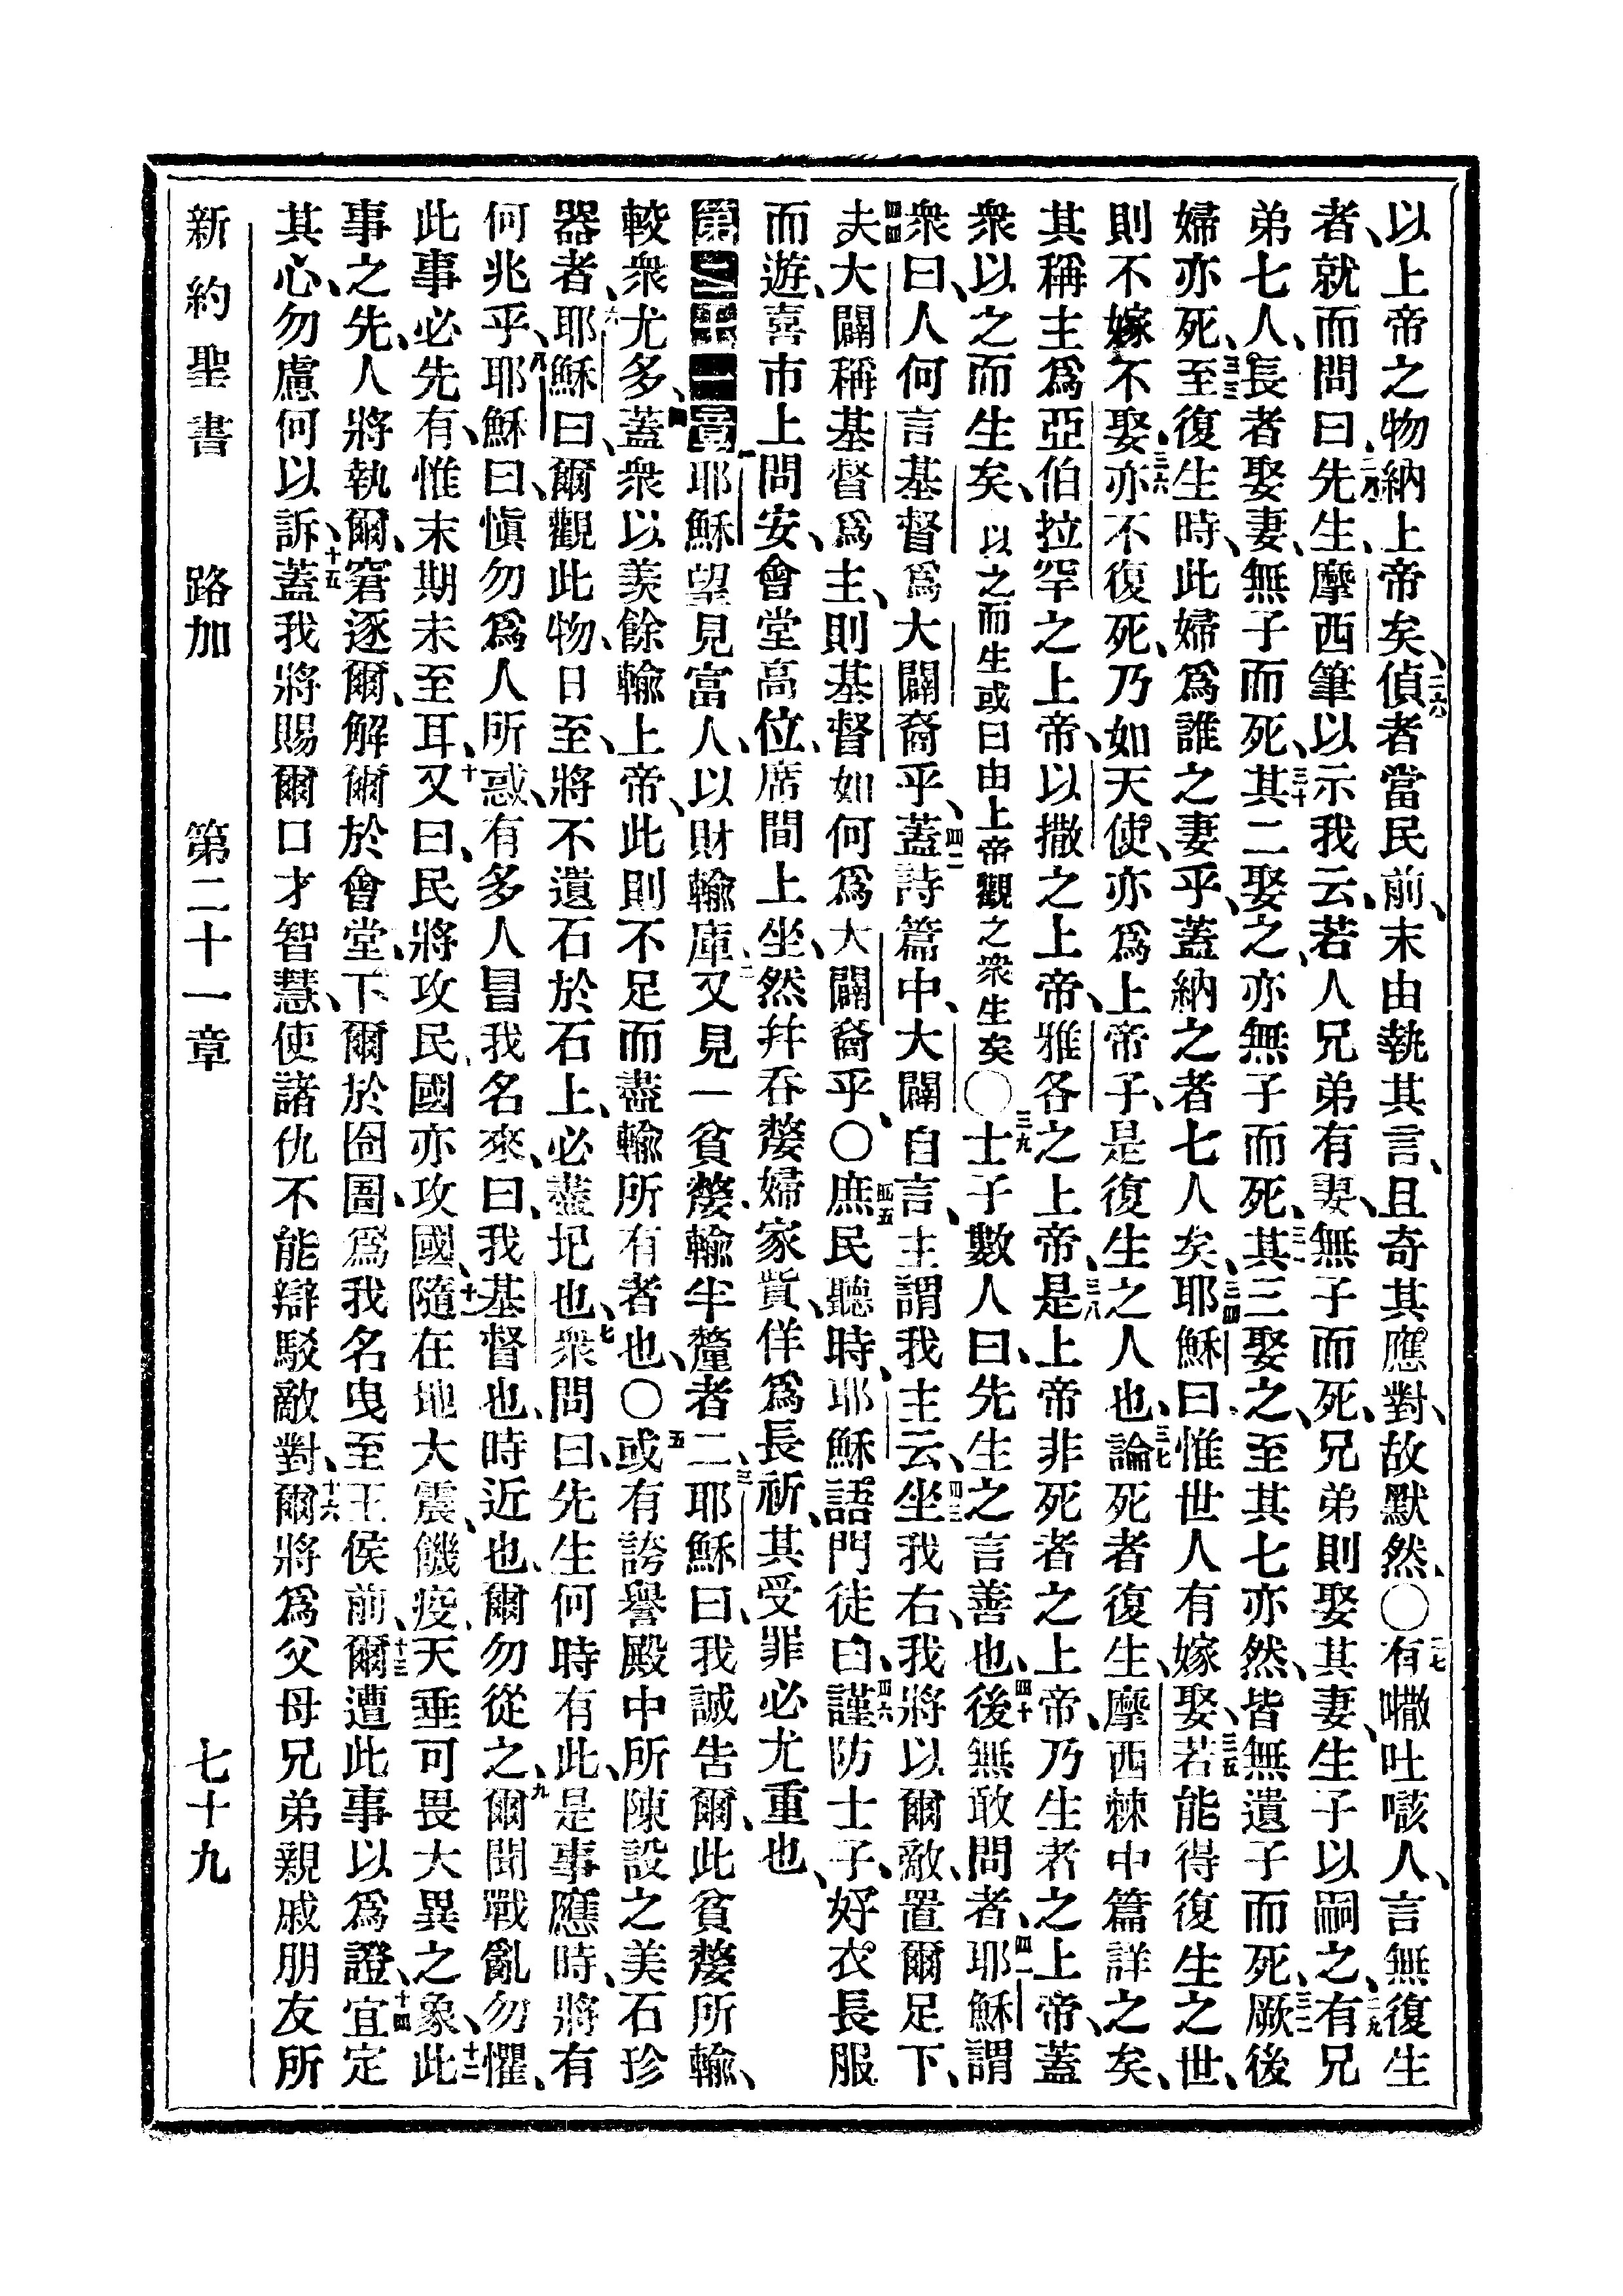 以上帝之物納上帝矣、二六偵者當民前、末由執其言、且奇其應對、故默然、〇二七有𠿕吐㗵人、言無復生
者、就而問曰、二八先生、摩西筆以示我云、若人兄弟有妻、無子而死、兄弟則娶其妻、生子以嗣之、二九有兄
弟七人、長者娶妻、無子而死、三十其二娶之、亦無子而死、三一其三娶之、至其七亦然、皆無遺子而死、三二厥後
婦亦死、三三至復生時、此婦爲誰之妻乎、蓋納之者七人矣、三四耶穌曰、惟世人有嫁娶、三五若能得復生之世、
則不嫁不娶、三六亦不復死、乃如天使、亦爲上帝子、是復生之人也、三七論死者復生、摩西棘中篇詳之矣、
其稱主爲亞伯拉罕之上帝、以撒之上帝、雅各之上帝、三八是上帝非死者之上帝、乃生者之上帝、蓋
衆以之而生矣、以之而生或曰由上帝觀之衆生矣〇三九士子數人曰、先生之言善也、四十後無敢問者、四一耶穌謂
衆曰、人何言基督爲大闢裔乎、四二蓋詩篇中、大闢自言、主謂我主云、坐我右、四三我將以爾敵、置爾足下、
四四夫大闢稱基督爲主、則基督如何爲大闢裔乎、〇四五庶民聽時、耶穌語門徒曰、四六謹防士子、好衣長服
而遊、喜市上問安、會堂高位、席間上坐、然幷吞嫠婦家貲、佯爲長祈、其受罪必尤重也、
第二十一章一耶穌望見富人、以財輸庫、二又見一貧嫠、輸半釐者二、三耶穌曰、我誠告爾、此貧嫠所輸、
較衆尤多、四蓋衆以羨餘輸上帝、此則不足而盡輸所有者也、〇五或有誇譽殿中所陳設之美石珍
器者、六耶穌曰、爾觀此物、日至、將不遺石於石上、必盡圮也、七衆問曰、先生何時有此、是事應時、將有
何兆乎、八耶穌曰、愼勿爲人所惑、有多人冒我名來、曰、我基督也、時近也、爾勿從之、九爾聞戰亂、勿懼、
此事必先有、惟末期未至耳、十又曰、民將攻民、國亦攻國、十一隨在地大震、饑疫、天垂可畏大異之象、十二此
事之先、人將執爾、窘逐爾、解爾於會堂、下爾於囹圄、爲我名曳至王侯前、十三爾遭此事以爲證、十四宜定
其心、勿慮何以訴、十五蓋我將賜爾口才智慧、使諸仇不能辯駁敵對、十六爾將爲父母兄弟親戚朋友所
新約聖書 路加 第二十一章 七十九